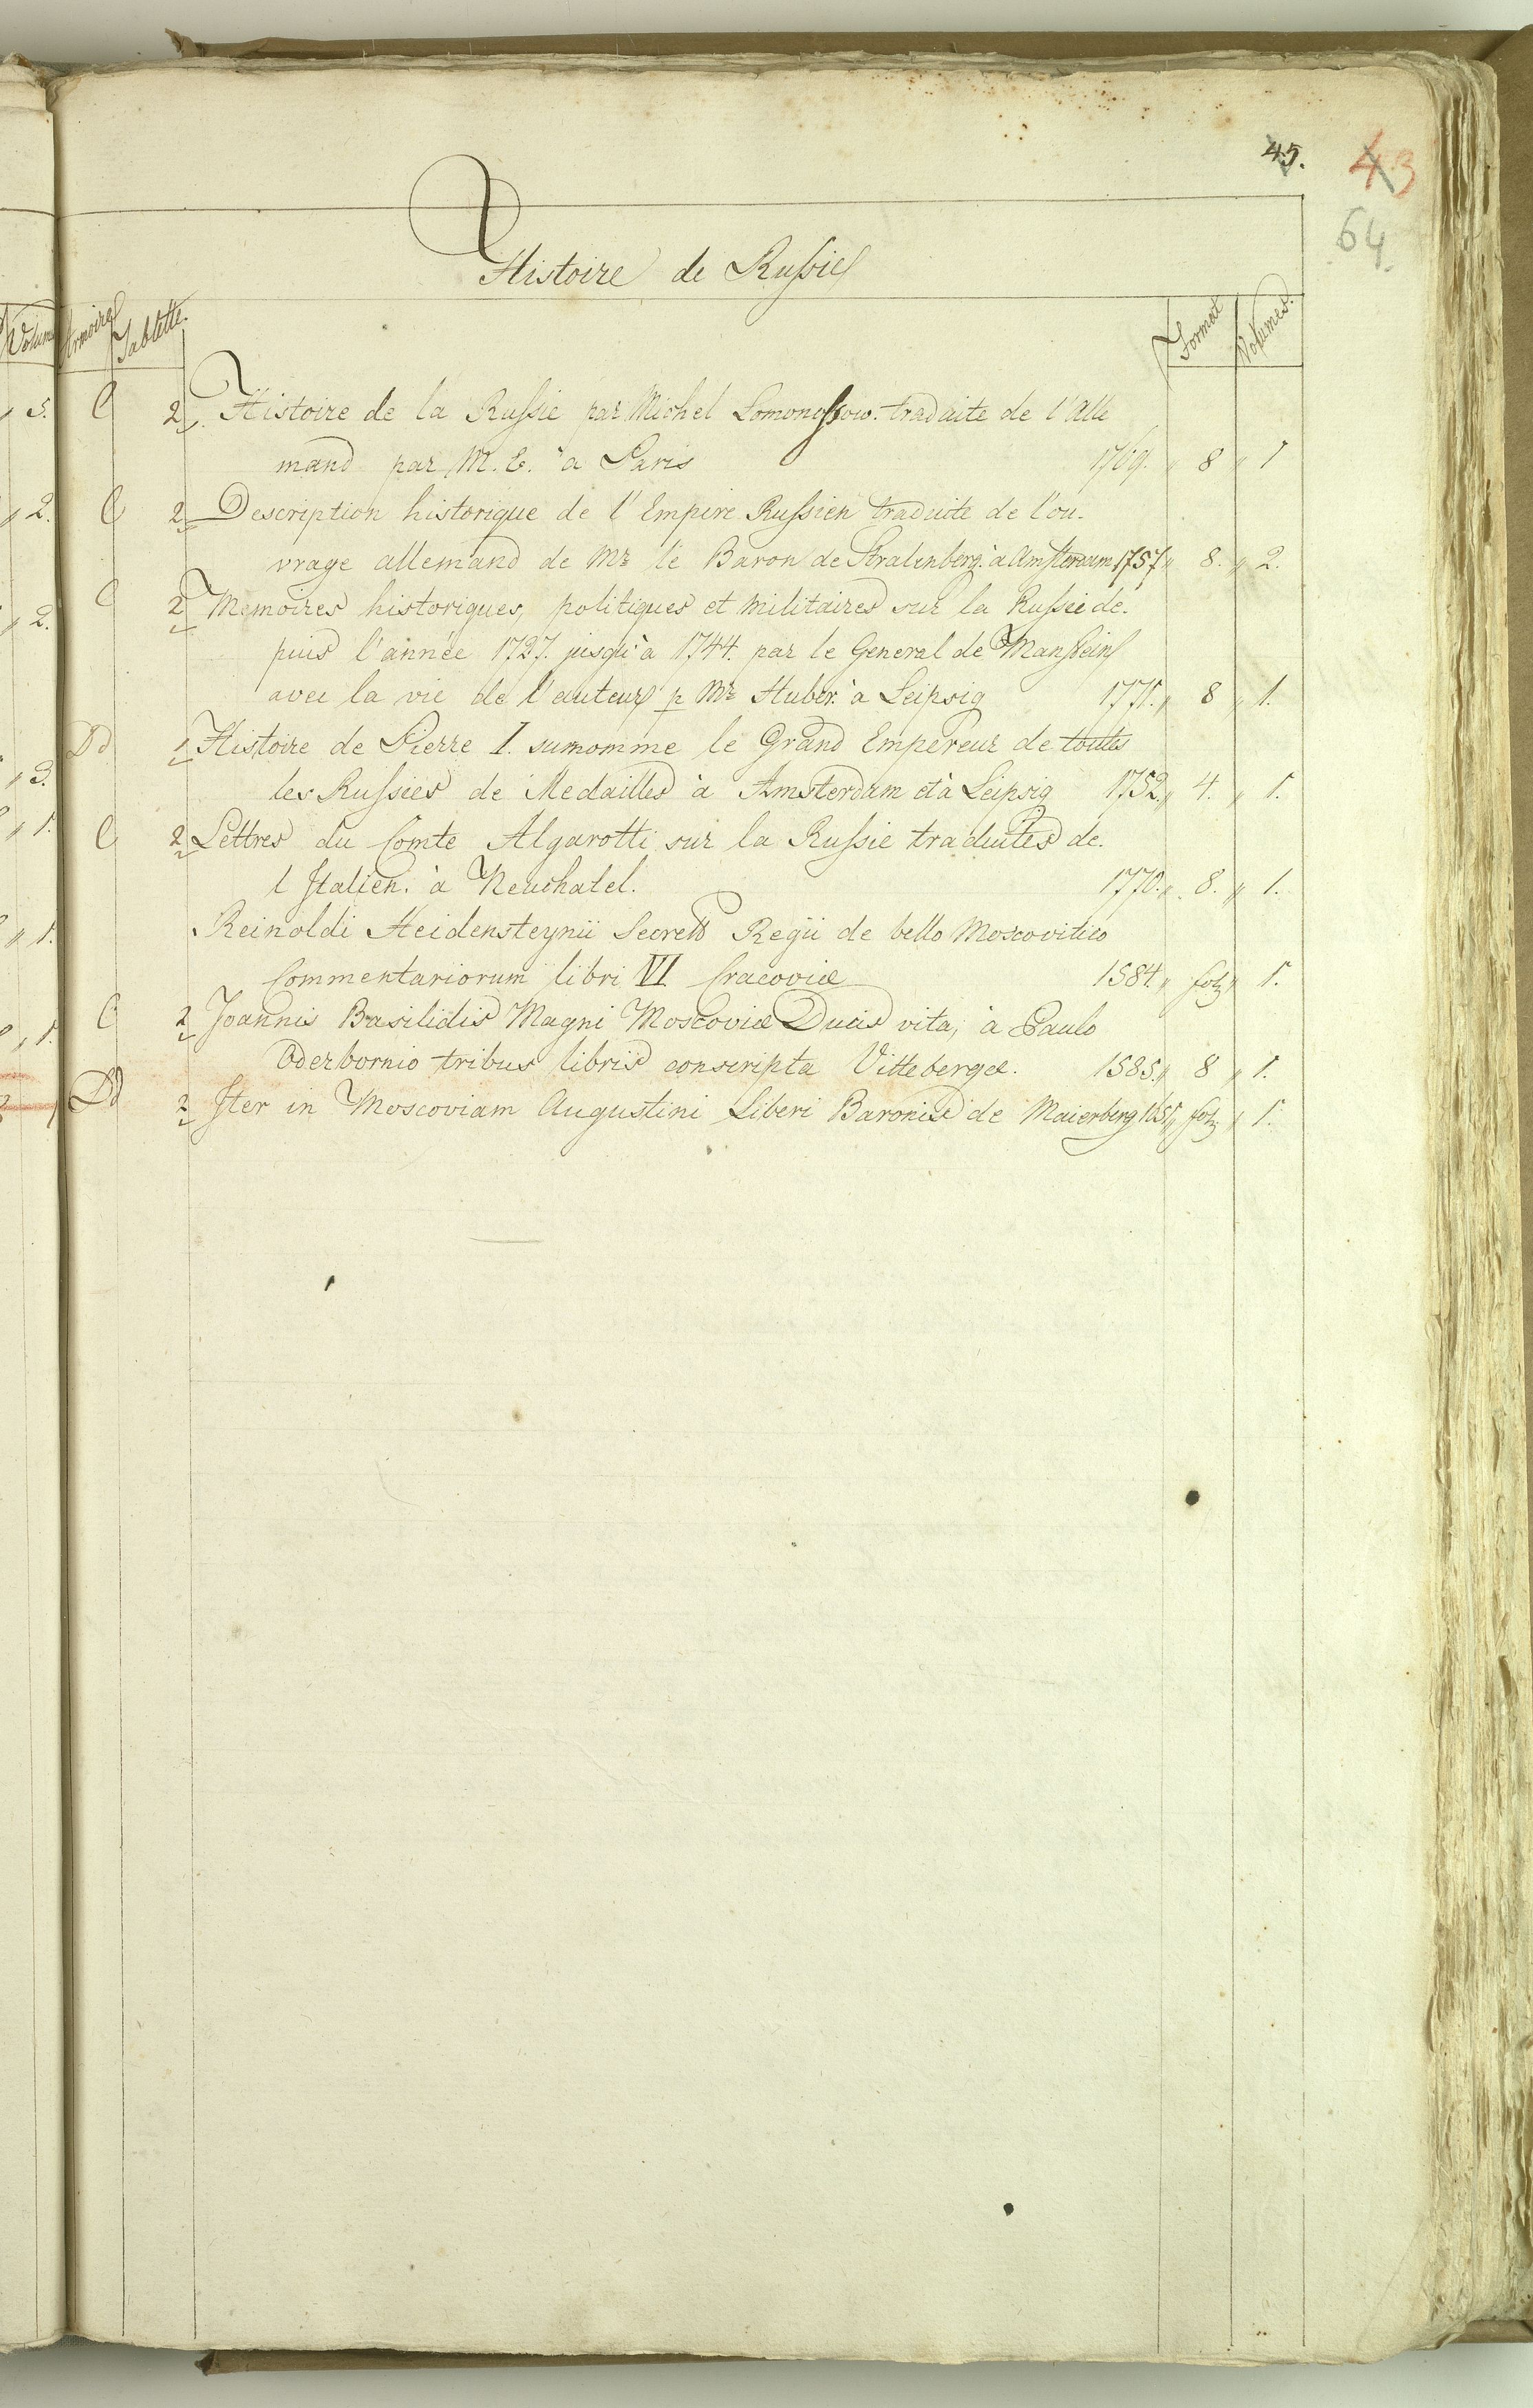 45. 43
64.
Histoire de Russie
Volum Armoire Tablette. Format Volumes.
C 2 Histoire de la Russie par Michel Lomonossow. traduite de l'Alle
mand par M. E. à Paris 1769. „ 8 „ 1
C 2 Description historique de l'Empire Russien traduite de l'ou-
vrage allemand de Mr le Baron de Stralenberg. à Amsterdam 1757 „ 8. „ 2.
C 2 Memoires historiques, politiques et militaires sur la Russie de-
puis l'année 1727. jusqu'à 1744. par le General de Manstein
avec la vie de l'auteur p Mr Huber. à Leipsig 1771. „ 8 „ 1.
Dd 1 Histoire de Pierre I. surnomme le Grand Empereur de toutes
les Russies de Medailles à Amsterdam et à Leipsig 1752. „ 4. „ 1.
C 2 Lettres du Comte Algarotti sur la Russie traduites de
l Italien. à Neuchatel. 1770. „ 8. „ 1.
Reinoldi Heidensteynii Secret Regii de bello Moscovitico
Commentariorum libri VI Cracoviæ 1584 „ fol „ 1.
C 2 Joannis Basilidis Magni Moscoviæ Ducis vita, à Paulo
Oderbornio tribus libris conscripta Vittebergæ. 1585. „ 8 „ 1.
Dd 2 Iter in Moscoviam Augustini Liberi Baronis de Maierberg „ fol „ 1.